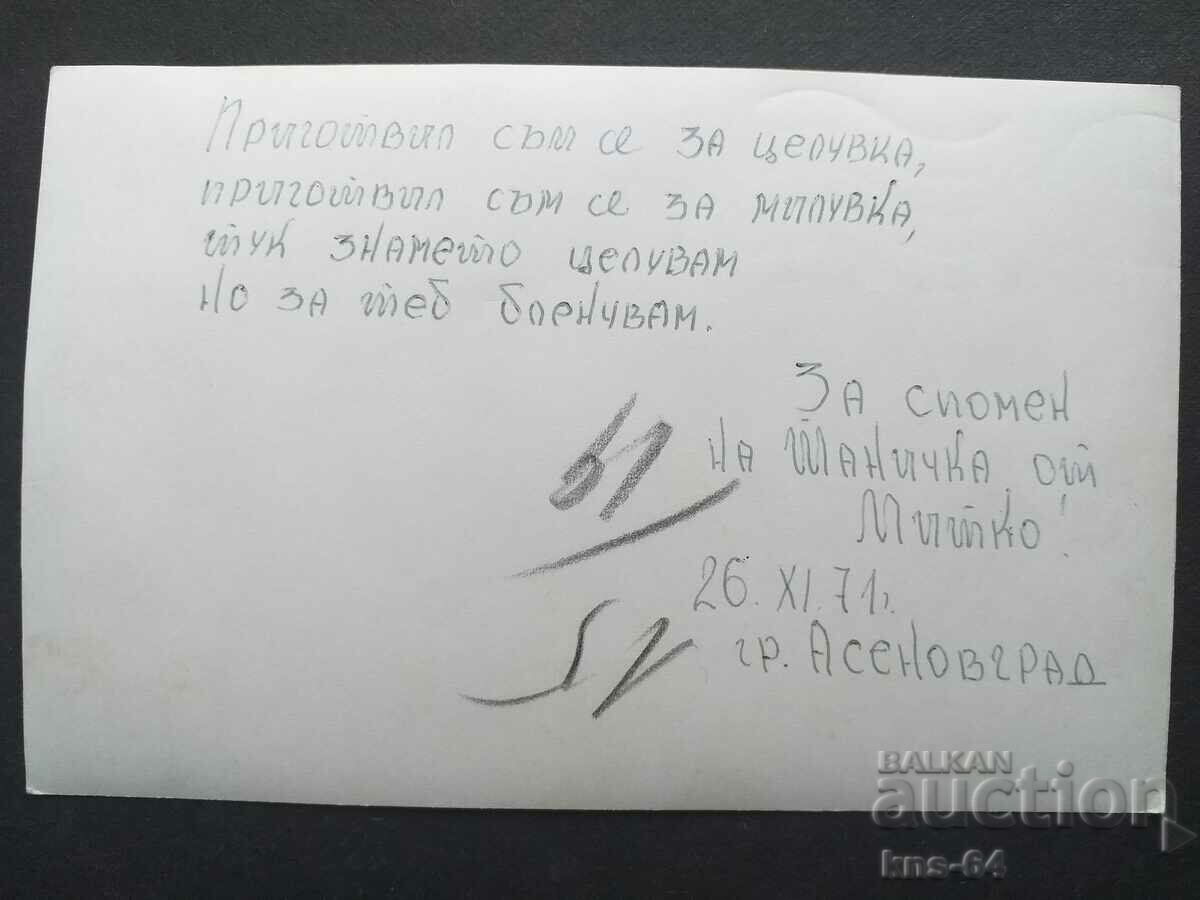 Приготвил съм се за целувка,
приготвил съм се за милувка,
тук знамето целувам
но за теб бленувам.
За спомен
на Таничка от
Митко!
26. XI. 71г.
гр. Асеновград
BALKAN
auction
kns-64